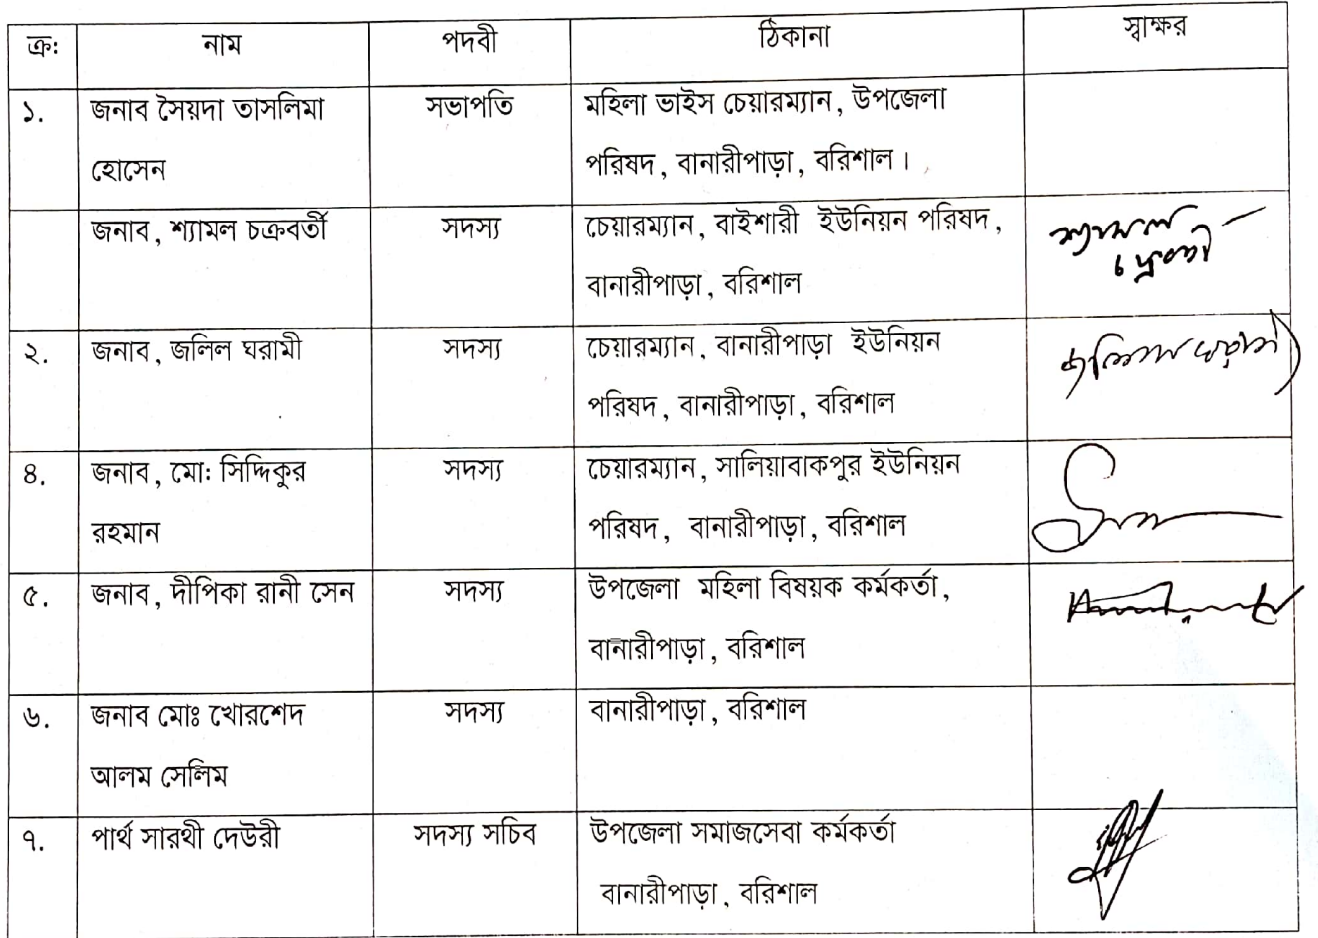 ক্র: নাম পদবী ঠিকানা স্বাক্ষর
১. জনাব সৈয়দা তাসলিমা সভাপতি মহিলা ভাইস চেয়ারম্যান, উপজেলা
হোসেন পরিষদ, বানারীপাড়া, বরিশাল।
জনাব, শ্যামল চক্রবর্তী সদস্য চেয়ারম্যান, বাইশারী ইউনিয়ন পরিষদ, শ্যামল
বানারীপাড়া, বরিশাল চক্রবর্তী
২. জনাব, জলিল ঘরামী সদস্য চেয়ারম্যান, বানারীপাড়া ইউনিয়ন জলিল ঘরামী
পরিষদ, বানারীপাড়া, বরিশাল
৪. জনাব, মো: সিদ্দিকুর সদস্য চেয়ারম্যান, সালিয়াবাকপুর ইউনিয়ন
রহমান পরিষদ, বানারীপাড়া, বরিশাল
৫. জনাব, দীপিকা রানী সেন সদস্য উপজেলা মহিলা বিষয়ক কর্মকর্তা,
বানারীপাড়া, বরিশাল
৬. জনাব মোঃ খোরশেদ সদস্য বানারীপাড়া, বরিশাল
আলম সেলিম
৭. পার্থ সারথী দেউরী সদস্য সচিব উপজেলা সমাজসেবা কর্মকর্তা
বানারীপাড়া, বরিশাল